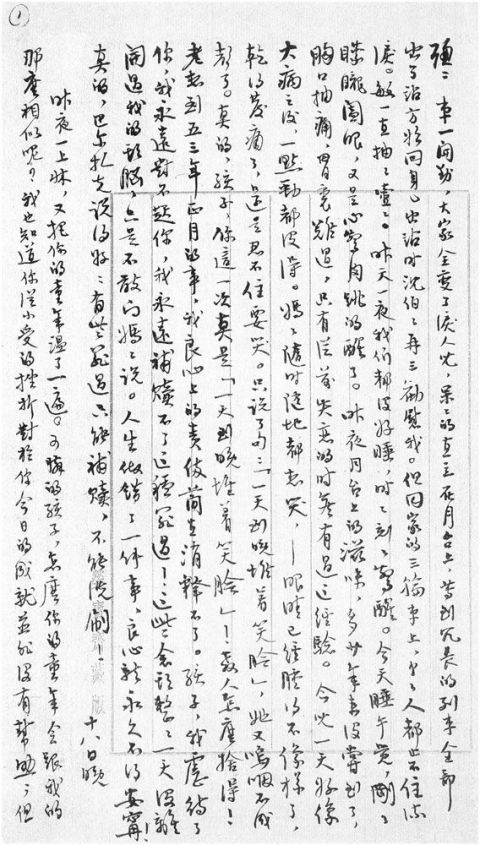 聰:車一開動,大家全變了淚人兒,呆呆的直立在月台上,等到冗長的列車全部
出了站方始回身。出站時沈伯伯再三勸慰我。但回家的三輪車上,個個人都止不住流
淚。敏一直抽抽噎噎。昨天一夜我們都没好睡,時時刻刻驚醒。今天睡午覺,剛剛
朦朧闔眼,又是心驚肉跳的醒了。昨夜月台上的滋味,多少年來没嘗到了,
胸口抽痛,胃裏難過,只有從前失戀的時候有過這經驗。今兒一天好像
大病之後,一點勁都没得。媽媽隨時隨地都想哭——眼睛已經腫得不像樣了,
乾得發痛了,還是忍不住要哭。只說了句「一天到晚堆着笑臉」,她又嗚咽不成
聲了。真的,孩子,你這一次真是「一天到晚堆着笑臉」!教人怎麼捨得!
老想到五三年正月的事,我良心上的責備簡直消釋不了。孩子,我虐待了
你,我永遠對不起你,我永遠補贖不了這種罪過!這些念頭整整一天没離
開過我的頭腦,只是不敢向媽媽說。人生做錯了一件事,良心就永久不得安寧!
真的,巴爾扎克說得好:有些罪過只能補贖,不能洗刷! 十八日晚
昨夜一上牀,又把你的童年温了一遍。可憐的孩子,怎麼你的童年會跟我的
那麼相似呢?我也知道你從小受的挫折對於你今日的成就並非没有幫助;但